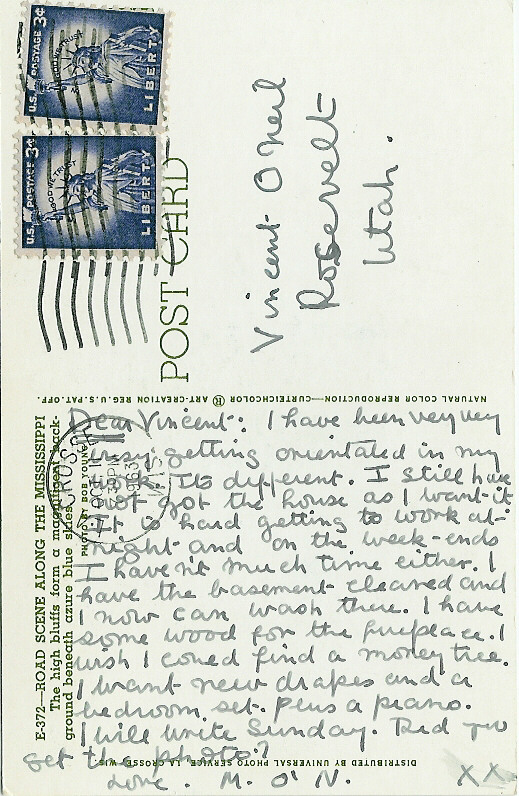 U.S. POSTAGE 3¢
IN GOD WE TRUST
LIBERTY
U.S. POSTAGE 3¢
IN GOD WE TRUST
LIBERTY
POST CARD
Vincent O'Neil
Rosevelt
Utah.
NATURAL COLOR REPRODUCTION—CURTEICHCOLOR ® ART-CREATION REG. U.S. PAT. OFF.
E-372—ROAD SCENE ALONG THE MISSISSIPPI
The high bluffs form a magnificent back-
ground beneath azure blue skies.
PHOTO BY BOB YOUNG
CROSSE
PM
1963
WIS
Dear Vincent: I have been very very
busy getting orientated in my
work. Its different. I still have
not got the house as I want it
It is hard getting to work at
night and on the week-ends
I haven't much time either. I
have the basement cleared and
I now can wash there. I have
some wood for the fireplace. I
wish I could find a money tree.
I want new drapes and a
bedroom set plus a piano.
I will write Sunday. Did you
get the photo?
Love. M. O'N. XX
DISTRIBUTED BY UNIVERSAL PHOTO SERVICE, LA CROSSE, WIS.